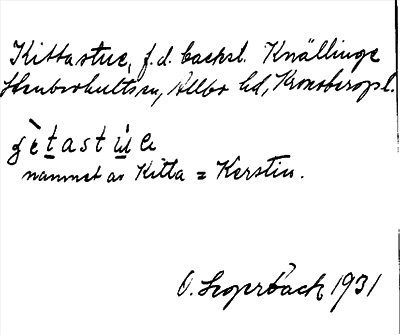 Kittastue, f.d. backst. Knällinge
Stenbrohults sn, Allbo hd, Kronobergs l.
gètastùe
namnet av Kitta = Kerstin.
O. 1931